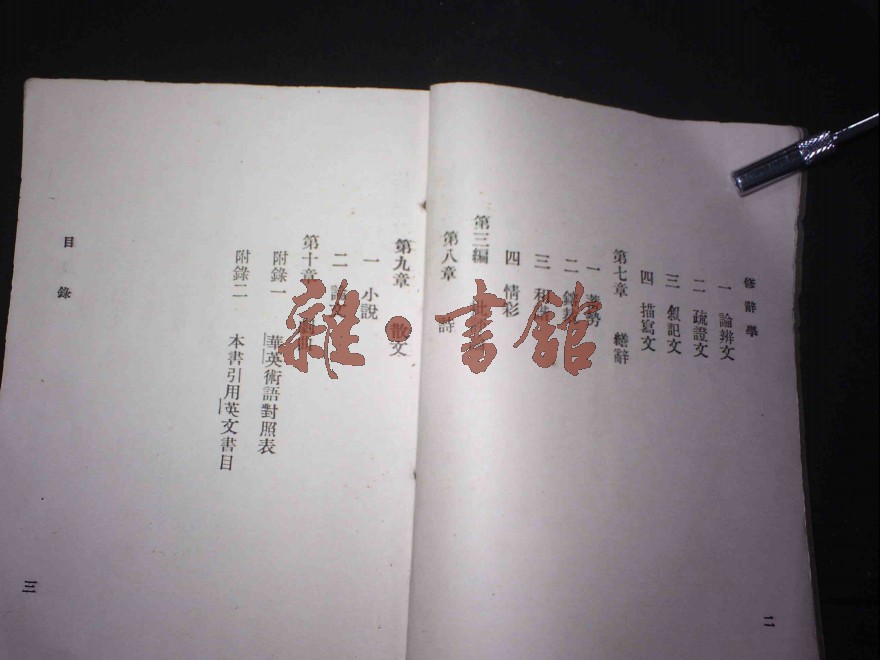 修辭學
一 論辨文
二 疏證文
三 敍記文
四 描寫文
第七章 繕辭
一
二
三 和
四 情彩
第三編
第八章 詩
二
第九章 散文
一 小說
二
第十章
附錄一 華英術語對照表
附錄二 本書引用英文書目
目錄
三
雜·書館